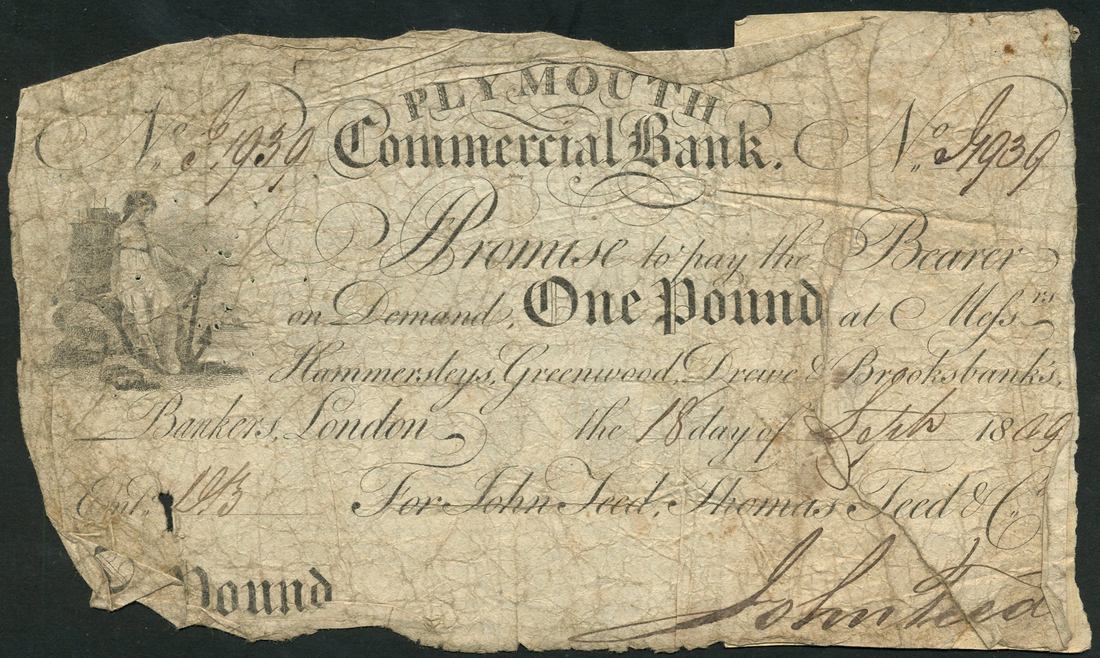 PLYMOUTH
No. J,1939. Commercial Bank. No. J1939
I Promise to pay the Bearer
on Demand, One Pound at Messrs
Hammersleys, Greenwood, Drewe & Brooksbank's,
Bankers, London the 18 day of Septr 1809
Entd.
For John Teed, Thomas Teed & Co.
Pound
John Teed